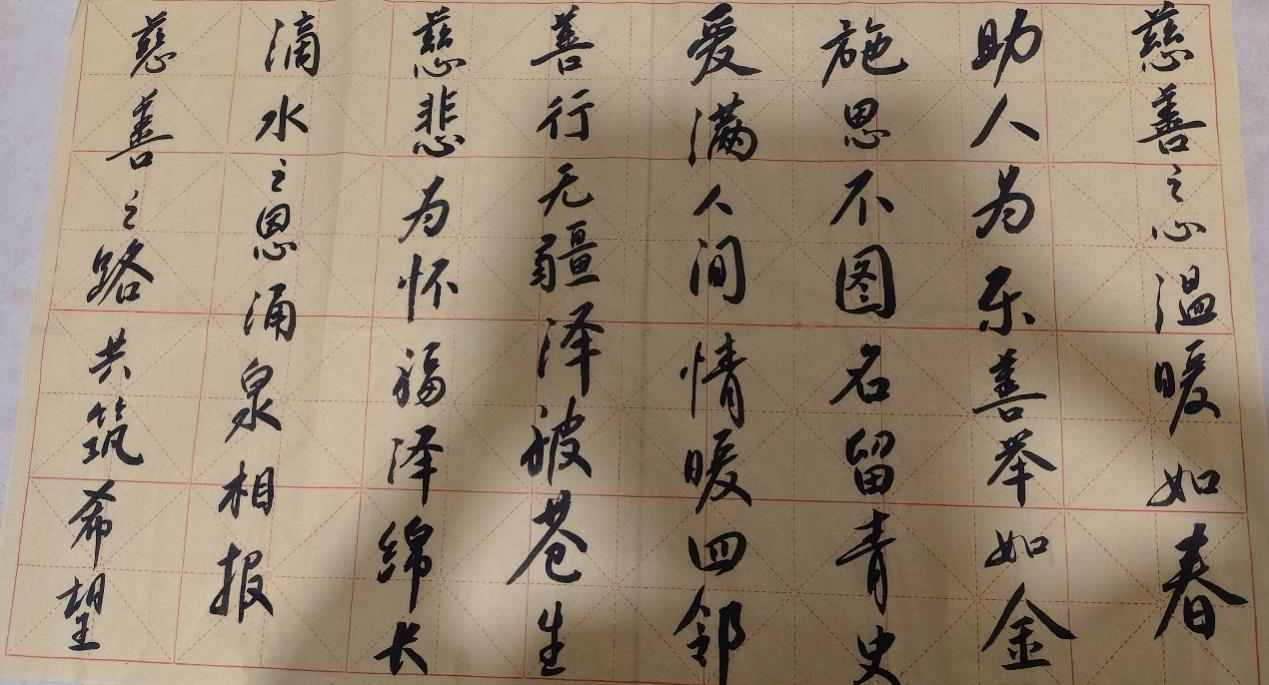 慈善之心温暖如春
助人为乐善举如金
施恩不图名留青史
爱满人间情暖四邻
善行无疆泽被苍生
慈悲为怀福泽绵长
滴水之恩涌泉相报
慈善之路共筑希望